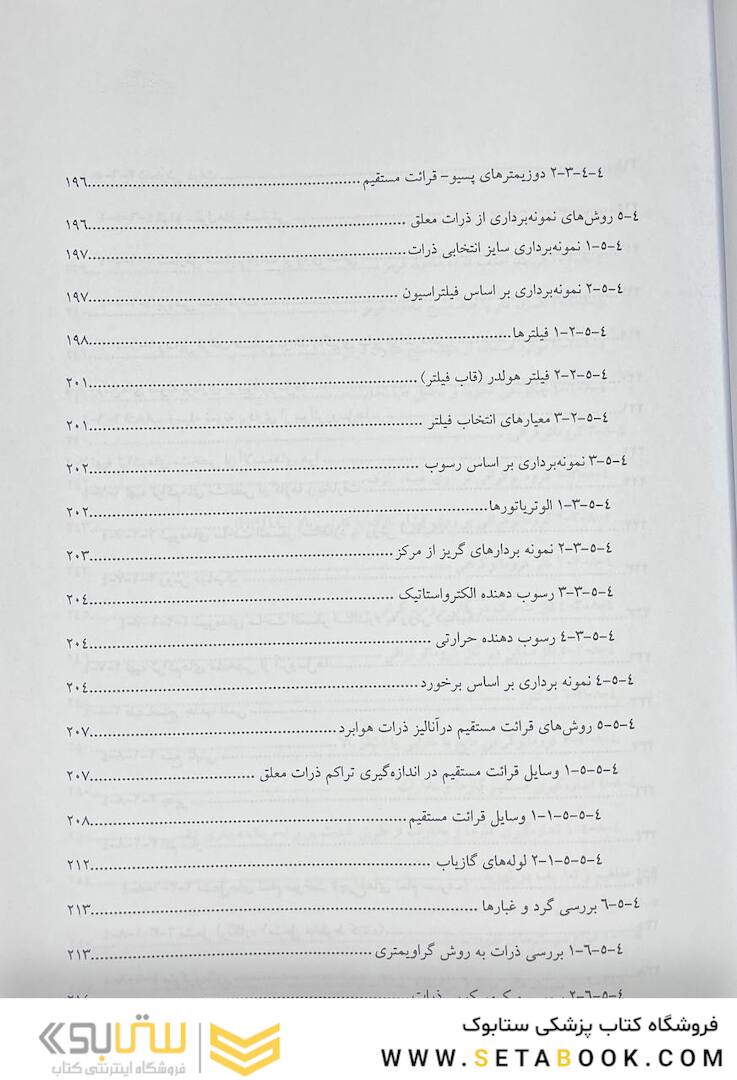 ۴-۴-۳-۲ دوزیمترهای پسیو- قرائت مستقیم ........ ۱۹۶
۴-۵ روش‌های نمونه‌برداری از ذرات معلق ........ ۱۹۶
۴-۵-۱ نمونه‌برداری سایز انتخابی ذرات ........ ۱۹۷
۴-۵-۲ نمونه‌برداری بر اساس فیلتراسیون ........ ۱۹۷
۴-۵-۲-۱ فیلترها ........ ۱۹۸
۴-۵-۲-۲ فیلتر هولدر (قاب فیلتر) ........ ۲۰۱
۴-۵-۲-۳ معیارهای انتخاب فیلتر ........ ۲۰۱
۴-۵-۳ نمونه‌برداری بر اساس رسوب ........ ۲۰۲
۴-۵-۳-۱ الوتریاتورها ........ ۲۰۲
۴-۵-۳-۲ نمونه بردارهای گریز از مرکز ........ ۲۰۳
۴-۵-۳-۳ رسوب دهنده الکترواستاتیک ........ ۲۰۴
۴-۵-۳-۴ رسوب دهنده حرارتی ........ ۲۰۴
۴-۵-۴ نمونه برداری بر اساس برخورد ........ ۲۰۴
۴-۵-۵ روش‌های قرائت مستقیم درآنالیز ذرات هوابرد ........ ۲۰۷
۴-۵-۵-۱ وسایل قرائت مستقیم در اندازه‌گیری تراکم ذرات معلق ........ ۲۰۷
۴-۵-۵-۱-۱ وسایل قرائت مستقیم ........ ۲۰۸
۴-۵-۵-۱-۲ لوله‌های گازیاب ........ ۲۱۲
۴-۵-۶ بررسی گرد و غبارها ........ ۲۱۳
۴-۵-۶-۱ بررسی ذرات به روش گراویمتری ........ ۲۱۳
۴-۵-۶-۲
فروشگاه کتاب پزشکی ستابوک
WWW.SETABOOK.COM
ستابوک
فروشگاه اینترنتی کتاب